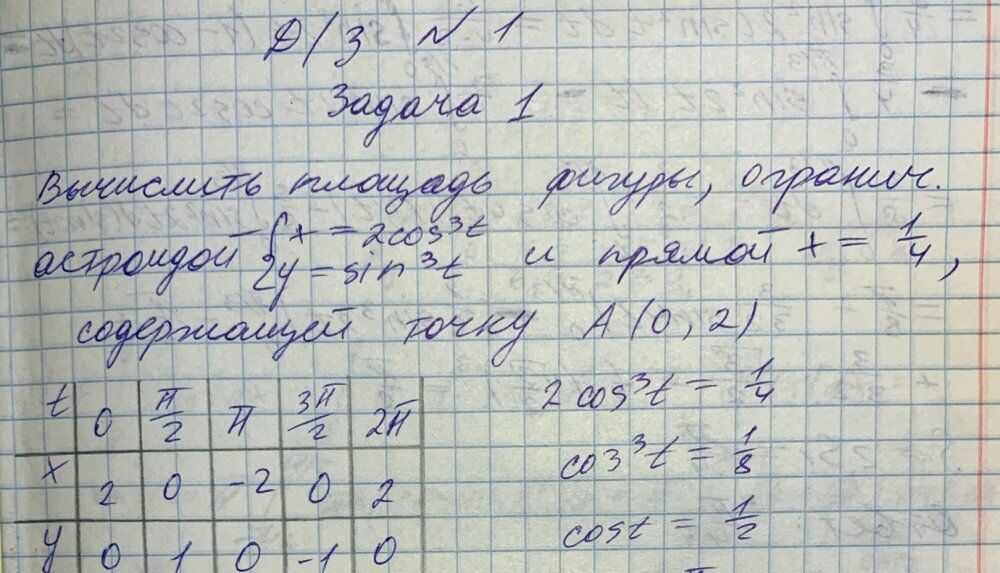 Д/З № 1
Задача 1
Вычислить площадь фигуры, огранич.
астроидой { x = 2cos³t
y = sin³t и прямой x = 1/4,
содержащей точку A (0, 2)
t 0 π/2 π 3π/2 2π
x 2 0 -2 0 2
y 0 1 0 -1 0
2cos³t = 1/4
cos³t = 1/8
cost = 1/2